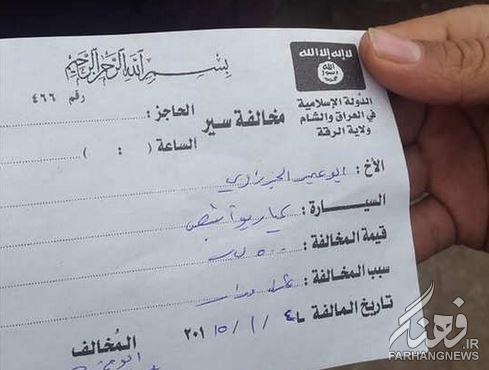 بسم الله الرحمن الرحيم
لا إله إلا الله
الله
رسول
محمد
الدولة الإسلامية
في العراق والشام
ولاية الرقة
رقم ٤٦٦
مخالفة سير
الحاجز :
الساعة ( : )
الأخ : ابو عمير
السيارة : كيا ريو
قيمة المخالفة : ٥٠٠
سبب المخالفة :
تاريخ المالفة ٤ / ١ / ٢٠١٥
المُخالف
ابو
فرهنگ
.IR
FARHANGNEWS